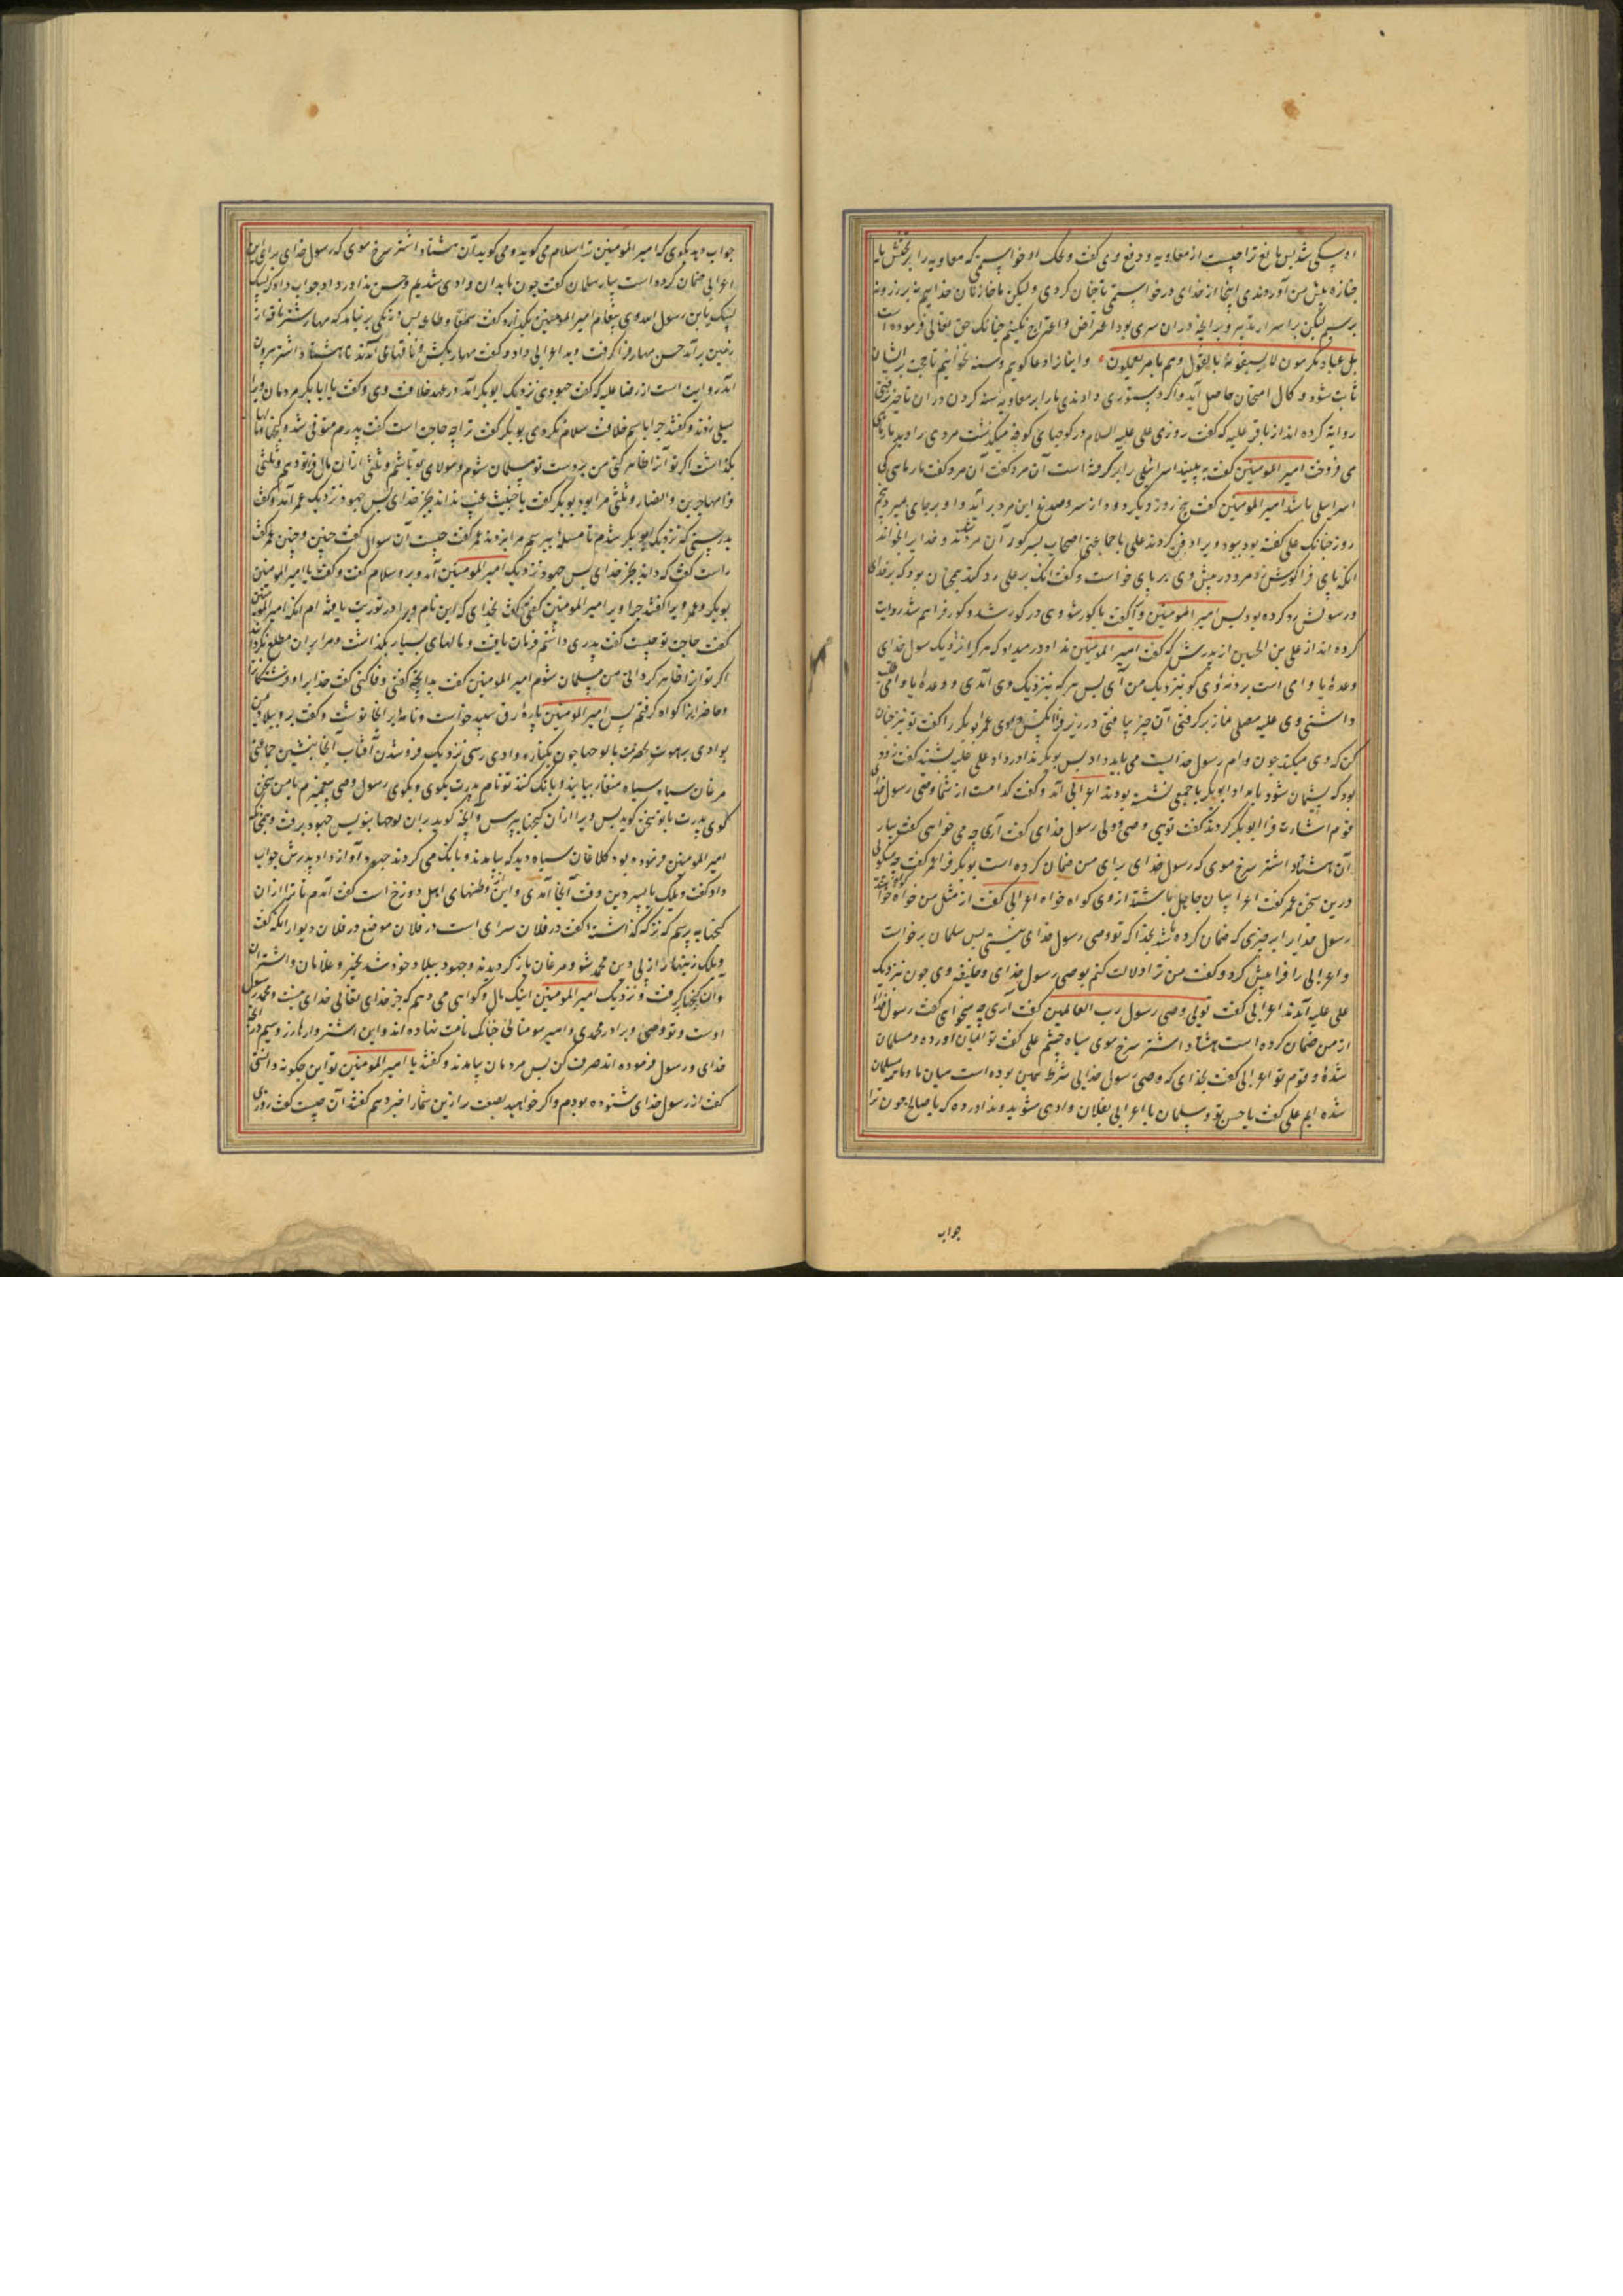 او سگی شد پس مانع ترا چیست از معاویه و دفع وی گفت ویحک اگر خواستمی که معاویه را بر تختش یا بر
جنازه پیش من آوردندی اینجا از خدای درخواستمی تا چنان کردی ولیکن ما خازنان خداییم نه بر زر و نه
بر سیم لیکن بر اسرار تدبیر وی و بر آنچه در آن سری بود اعتراض و اقتراح نکنیم چنانک حق تعالی فرموده است
بل عباد مکرمون لا یسبقونه بالقول وهم بامره یعملون و اینان را دعا گوییم و بسنه نخوانیم تا حجت بر ایشان
ثابت شود و کمال امتحان حاصل آید و اگر دستوری دادندی ما را بر معاویه
روایت کرده اند از باقر علیه که گفت روزی علی علیه السلام در کوچهای کوفه میگذشت مردی را دید مارماهی
می فروخت امیر المومنین گفت ببینید اسرائیلی را برگرفته است آن مرد گفت مارماهی کی
اسرائیلی باشد امیر المومنین گفت پنج روز دیگر دود از سر و صدغ این مرد برآید و او بر جای بمیرد پنجم
روز چنانک علی گفته بود ببود ویرا دفن کردند علی با جماعتی اصحاب بسر گور آن مرد شد و خدای را بخواند
آنگه پای فرا گورش زد مرد در پیش وی بر پای خواست و گفت آنک بر علی رد کند همچنان بود که بر خدای
و رسولش رد کرده بود پس امیر المومنین ویرا گفت با گور شو وی در گور شد و گور فراهم شد روایت
کرده اند از علی بن الحسین از پدرش که گفت امیر المومنین ندا در میداد که هر کرا نزدیک رسول خدای
وعدهٔ یا وامی است برونه وی کو بنزدیک من آی پس هر که بنزدیک وی آمدی و وعدهٔ یا وامی طلب
داشتی وی علیه مصلی نماز برگرفتی آن چیز یافتی در زیر فرا پیش وی عمر ابوبکر را گفت تو نیز چنان
کن که وی میکند چون وام رسول خدایت می باید داد پس بوبکر ندا در داد علی علیه بشنید گفت زود
بود که پشیمان شود بامداد ابوبکر با جمعی نشسته بودند اعرابی آمد و گفت کدامست از شما وصی رسول خدای
قوم اشارت فرا ابوبکر کردند گفت توئی وصی و ولی رسول خدای گفت آری چه می خواهی گفت بیار
آن هشتاد اشتر سرخ موی که رسول خدای برای من ضمان کرده است بوبکر فرا عمر گفت چه میگوئی
درین سخن عمر گفت اعرابیان جاهل باشند از وی گواه خواه اعرابی گفت از مثل من گواه خواهند
رسول خدای را بر چیزی که ضمان کرده باشد بخدا که تو وصی رسول خدای نیستی پس سلمان برخواست
و اعرابی را فرا پیش کرد و گفت من ترا دلالت کنم بوصی رسول خدای و خلیفه وی چون بنزدیک
علی علیه آمدند اعرابی گفت توئی وصی رسول رب العالمین گفت آری چه میخواهی گفت رسول خدا
از من ضمان کرده است هشتاد اشتر سرخ موی سیاه چشم علی گفت تو ایمان آورده و مسلمان
شدهٔ و قوم تو اعرابی گفت بخدای که وصی رسول خدایی شرط همین بوده است میان ما و ما همه مسلمان
شده ایم علی گفت یا حسن تو و سلمان با اعرابی بفلان وادی شوید و ندا در ده که یا صالح چون ترا
جواب
جواب دهد بگوی که امیر المومنین ترا سلام می گوید و می گوید آن هشتاد اشتر سرخ موی که رسول خدای برای این
اعرابی ضمان کرده است بیار سلمان گفت چون ما بدان وادی شدیم و حسن ندا در داد جواب داد که لبیک
لبیک یابن رسول الله وی پیغام امیر المومنین بگذارد گفت سمعا و طاعة پس درنگی بر نیامد که مهار شتر ناقه از
زمین برآمد حسن مهار فرا گرفت و بد اعرابی داد و گفت مهار بکش و ناقها می آمدند تا هشتاد اشتر بیرون
آمد روایت است از رضا علیه که گفت جهودی نزدیک ابوبکر آمد در عهد خلافت وی و گفت یا ابابکر مردمان ویرا
سیلی زدند و گفتند چرا باسم خلافت سلام نکردی بوبکر گفت ترا چه حاجت است گفت پدرم متوفی شد و گنجها و مالها
بگذاشت اگر تو آن را ظاهر کنی من بر دست تو مسلمان شوم و مولای تو باشم و ثلثی از آن مال فرا تو دهم و ثلثی
فرا مهاجرین و انصار و ثلثی مرا بود بوبکر گفت یا خبیث غیب نداند بجز خدای پس جهود نزدیک عمر آمد و گفت
بدرستی که نزدیک ابوبکر شدم تا مسله بپرسم مرا بزدند عمر گفت چیست آن سوال گفت چنین و چنین عمر گفت
راست گفت که داند بجز خدای پس جهود نزدیک امیر المومنین آمد و برو سلام گفت و گفت یا امیر المومنین
بوبکر و عمر ویرا گفتند چرا ویرا امیر المومنین گفتی گفت بخدای که این نام ویرا در توریت یافته ام آنگه امیر المومنین
گفت حاجت تو چیست گفت پدری داشتم فرمان یافت و مالهای بسیار بگذاشت و مرا بر آن مطلع نگردانید
اگر تو آن را ظاهر گردانی من مسلمان شوم امیر المومنین گفت بدانچه گفتی وفا کنی گفت خدایرا و فرشتگان
و حاضران را گواه گرفتم پس امیر المومنین پارهٔ رق سپید خواست و نامهٔ بر آنجا نوشت و گفت برو ببلاد یمن
بوادی برهوت بحضرموت با لوحها چون بکناره وادی رسی نزدیک فرو شدن آفتاب آنجا بنشین جماعتی
مرغان سیاه سیاه منقار بیایند و بانگ کنند تو نام پدرت بگوی و بگوی رسول وصی پیغمبرم با من سخن
گوی پدرت با تو سخن گوید پس ویرا از آن گنجها بپرس و آنچه گوید بر آن لوحها بنویس جهود برفت و همچنانک
امیر المومنین فرموده بود کلاغان سیاه دید که بیامدند و بانگ می کردند جهود آواز داد پدرش جواب
داد گفت ویلک یا پسر درین وقت آنجا آمدی و این از وطنهای اهل دوزخ است گفت آمدم تا ترا از آن
گنجها بپرسم که کجا گذاشتهٔ گفت در فلان سرای است در فلان موضع در فلان دیوار آنگه گفت
ویلک زینهار از پی دین محمد شو و مرغان بازگردیدند و جهود ببلاد خود شد بخیبر و غلامان و اشتران
و آن گنجها برگرفت و نزدیک امیر المومنین اینک مال و گواهی می دهم که جز خدای تعالی خدای نیست و محمد رسول
اوست و تو وصی و برادر محمدی و امیر مومنانی چنانک نامت نهاده اند و این اشتروارها زر و سیم
خدای و رسول فرموده اند صرف کن پس مردمان بیامدند و گفتند یا امیر المومنین تو این چگونه دانستی
گفت از رسول خدای شنوده بودم و اگر خواهید بصعب تر ازین شما را خبر دهم گفتند آن چیست گفت روزی